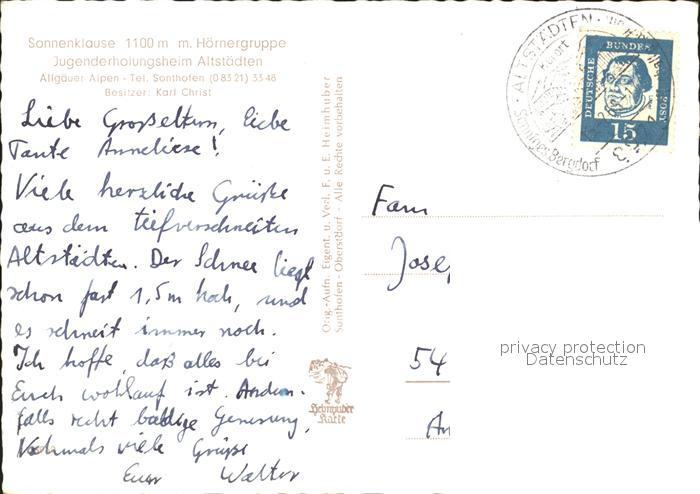 Sonnenklause 1100 m m. Hörnergruppe
Jugenderholungsheim Altstädten
Allgäuer Alpen - Tel. Sonthofen (0 83 21) 33 48
Besitzer: Karl Christ
Liebe Großeltern, liebe
Tante Anneliese!
Viele herzliche Grüße
aus dem tiefverschneiten
Altstädten. Der Schnee liegt
schon fast 1,5m hoch, und
es schneit immer noch.
Ich hoffe, daß alles bei
Euch wohlauf ist. Andern-
falls recht baldige Genesung,
Nochmals viele Grüße
Euer Walter
Orig.-Aufn. Eigent. u. Verl. F. u. E. Heimhuber
Sonthofen - Oberstdorf - Alle Rechte vorbehalten
Heimhuber
Karte
ALTSTÄDTEN
Kurort
Sonniges Bergdorf
DEUTSCHE
BUNDES
POST
15
Fam
Jose
54
An
privacy protection
Datenschutz